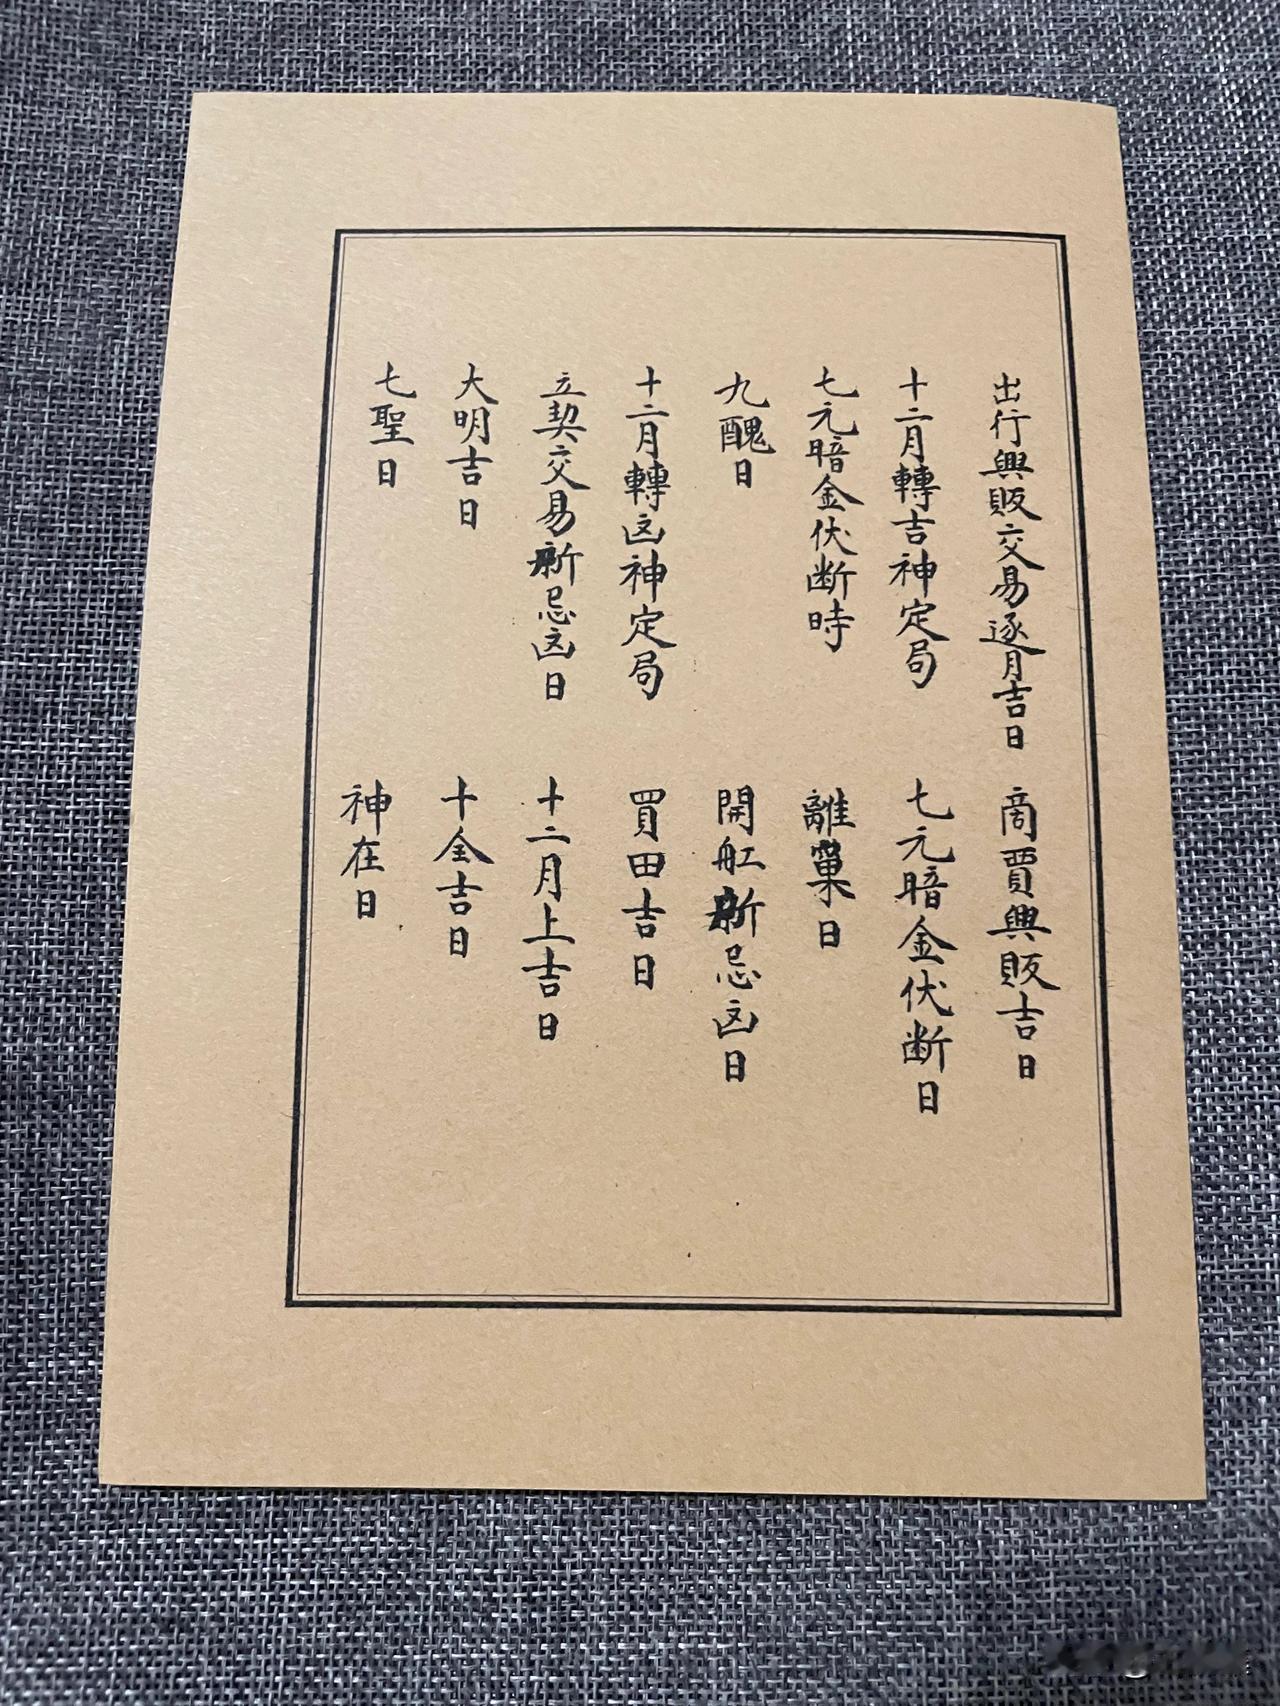 出行興販交易逐月吉日
商賈興販吉日
十二月轉吉神定局
七元暗金伏断日
七元暗金伏断時
離巢日
九醜日
開舡新忌凶日
十二月轉凶神定局
買田吉日
立契交易新忌凶日
十二月上吉日
大明吉日
十全吉日
七聖日
神在日